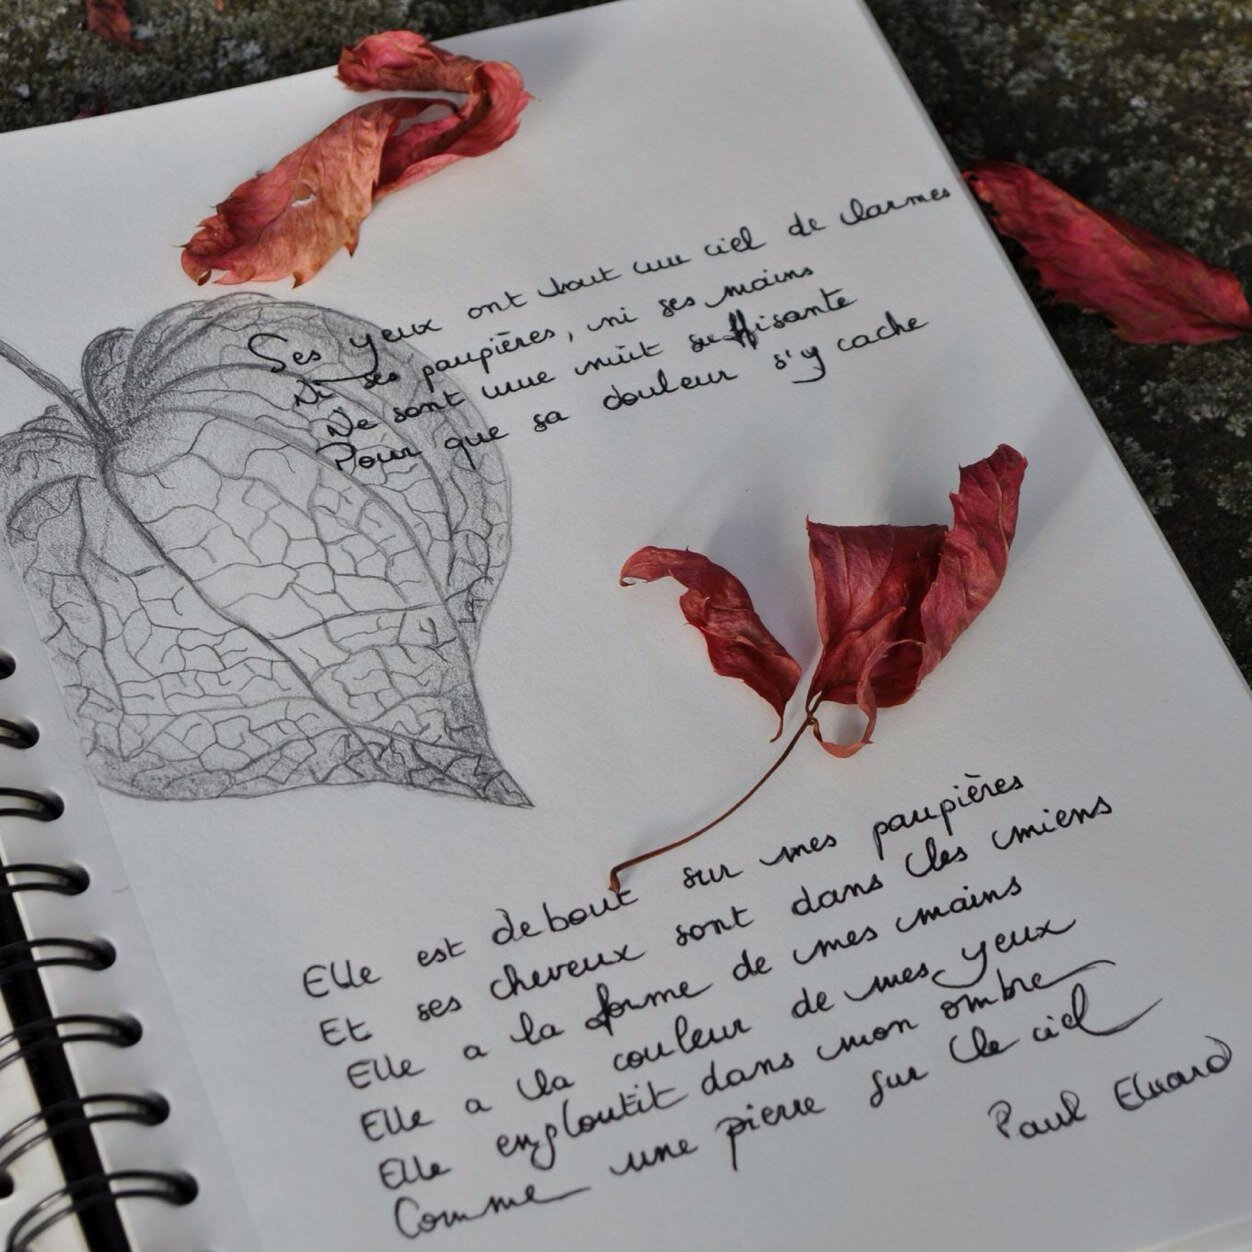 Ses yeux ont tout un ciel de larmes
Ni ses paupières, ni ses mains
Ne sont une nuit suffisante
Pour que sa douleur s'y cache
Elle est debout sur mes paupières
Et ses cheveux sont dans les miens
Elle a la forme de mes mains
Elle a la couleur de mes yeux
Elle engloutit dans mon ombre
Comme une pierre sur le ciel
Paul Eluard